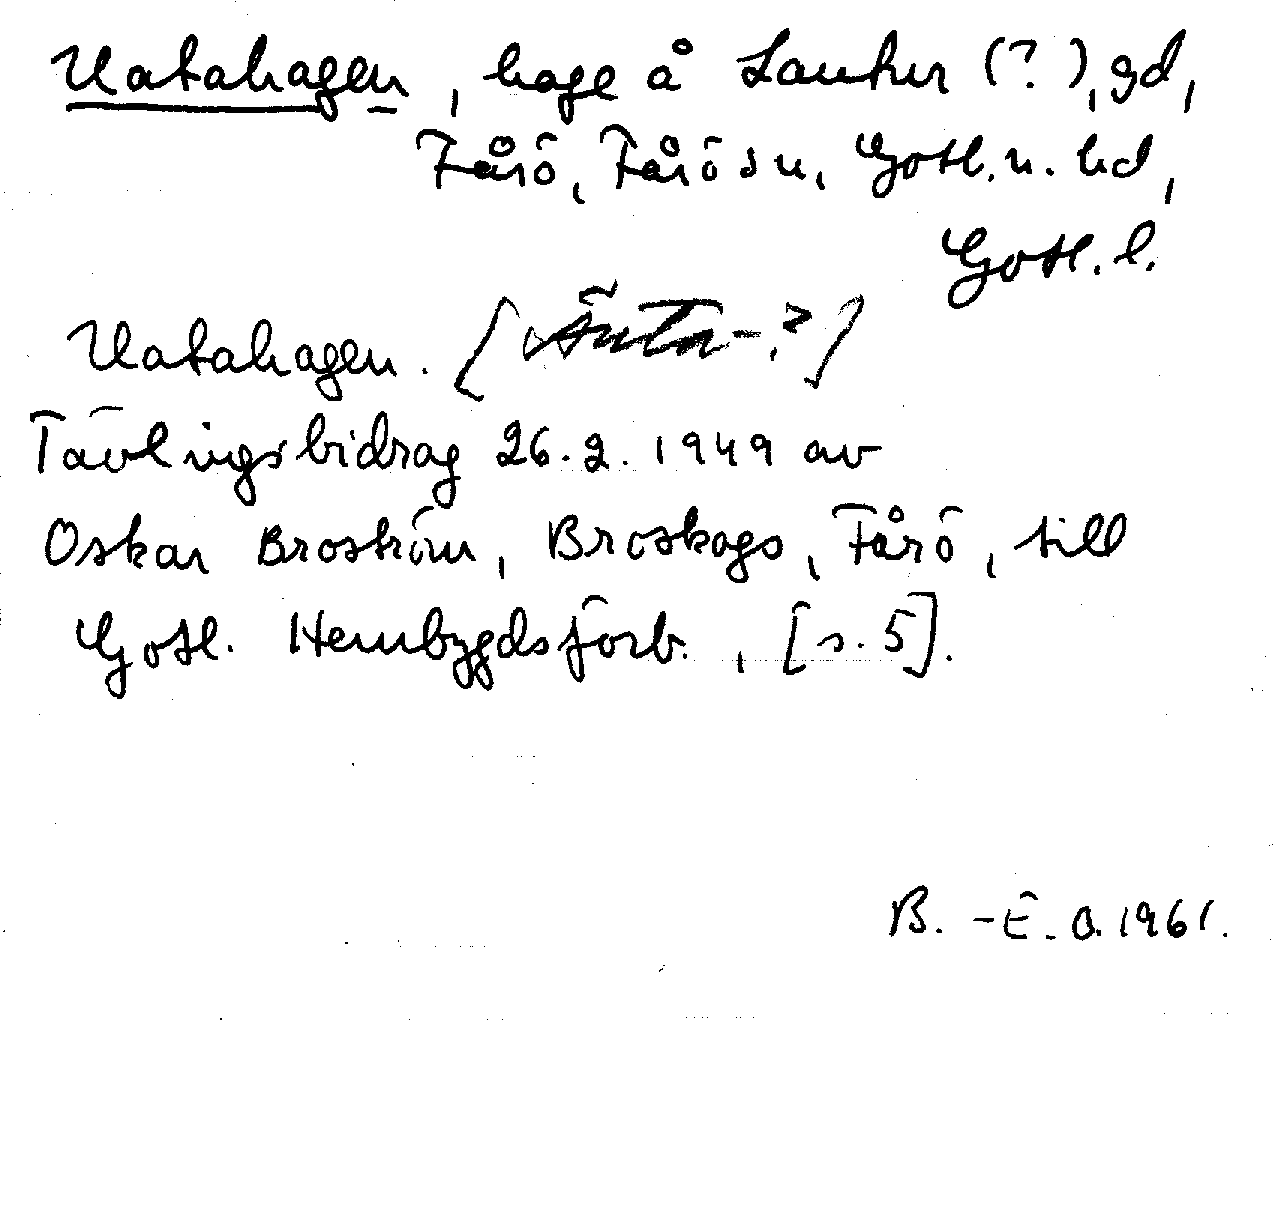 Uatahagen, hage å Lauter (?), gd,
Fårö, Fårö sn, Gotl. n. hd,
Gotl. l.
Uatahagen. [Änta-?]
Tävlingsbidrag 26.2.1949 av
Oskar Broström, Broskogs, Fårö, till
Gotl. Hembygdsförb., [s. 5].
B.-E. O. 1961.